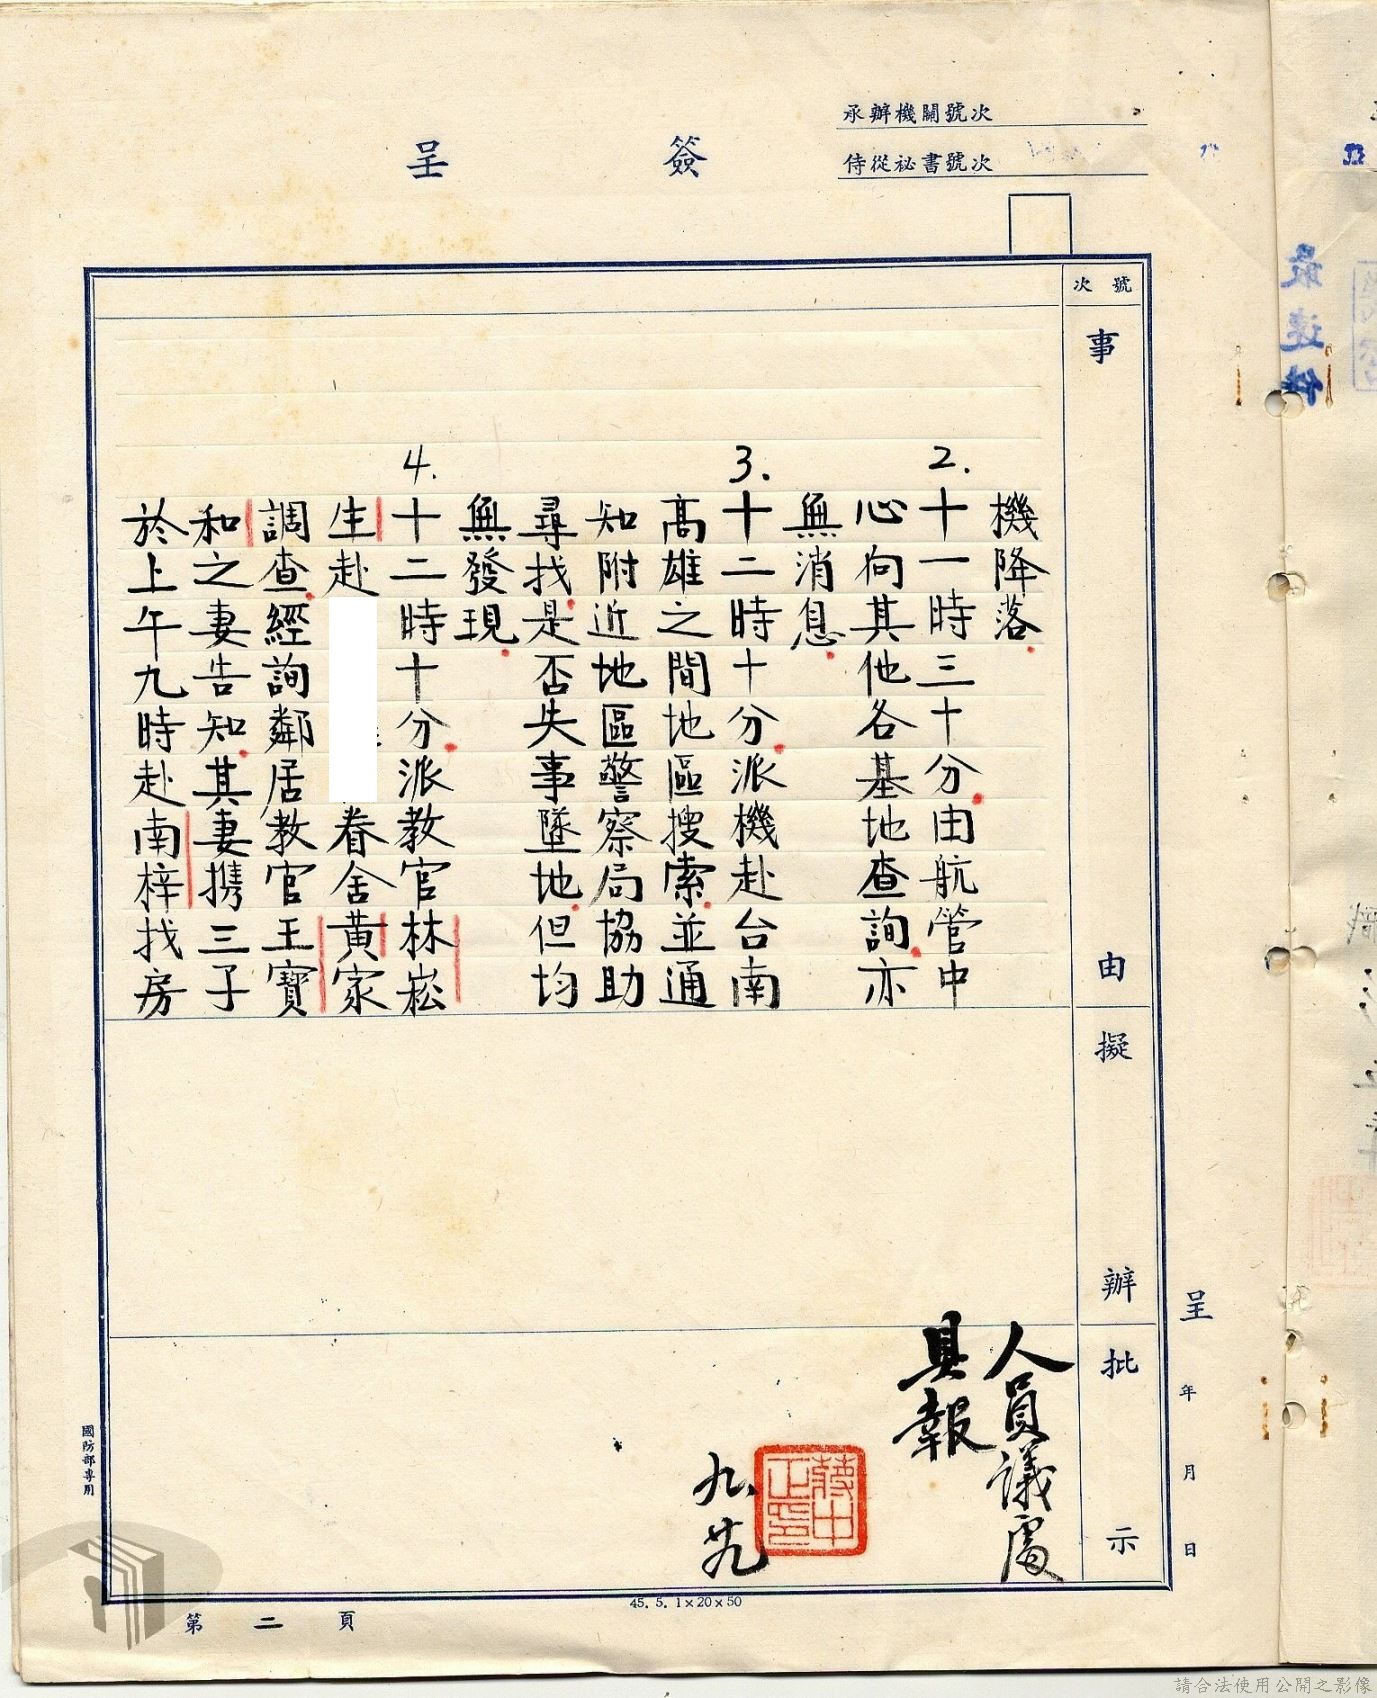 承辦機關號次
侍從祕書號次
簽呈
號次
事由
機降落
2.十一時三十分由航管中
心向其他各基地查詢亦
無消息
3.十二時十分派機赴台南
高雄之間地區搜索並通
知附近地區警察局協助
尋找是否失事墜地但均
無發現
4.十二時十分派教官林崧
生赴眷舍黃家
調查經詢鄰居教官王寶
和之妻告知其妻携三子
於上午九時赴南梓找房
擬辦
批示
人員議處
具報
蔣中正印
九、廿九
呈 年 月 日
國防部專用
第二頁
45. 5. 1×20×50
最速件
請合法使用公開之影像